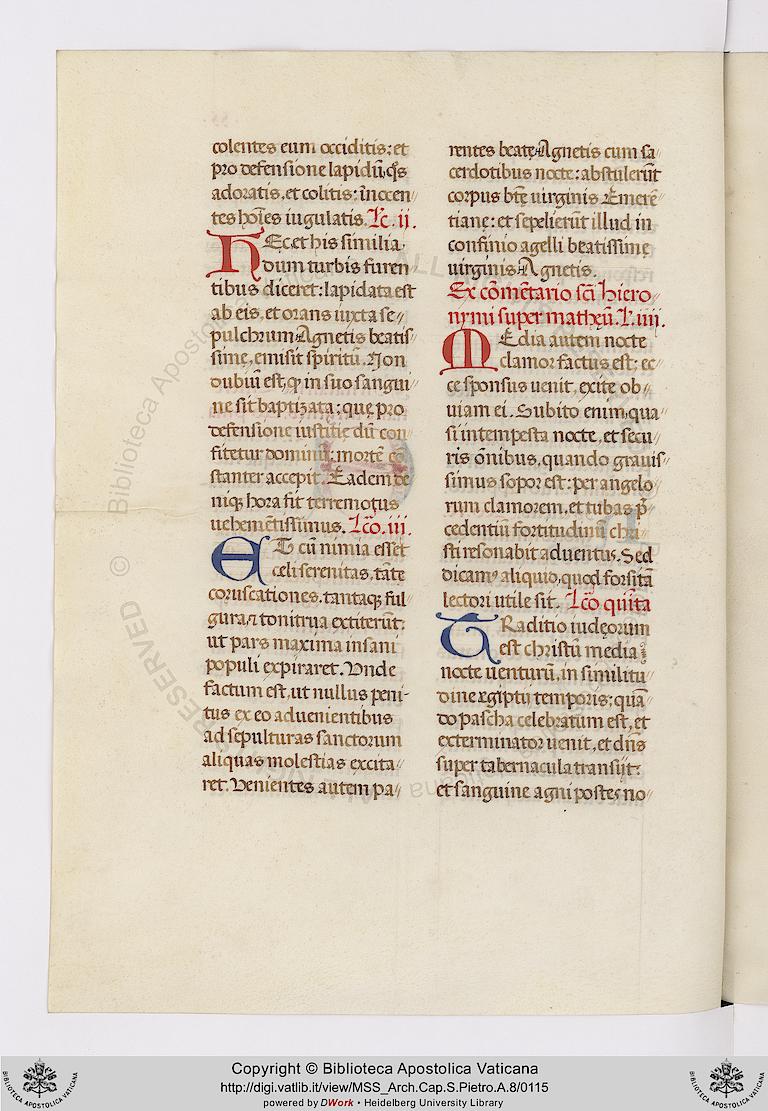 colentes eum occiditis: et
pro defensione lapidū, q̄s
adoratis, et colitis: innocen
tes hoīes iugulatis. Lc. ii.
HEc et his similia
dum turbis furen
tibus diceret: lapidata est
ab eis, et orans iuxta se
pulchrum Agnetis beatis
simę, emisit spiritū. Non
dubiū est, qp in suo sangui
ne sit baptizata: quę pro
defensione iustitię dū con
fitetur dominū: mortē cō
stanter accepit. Eadem de
niqȝ hora fit terremotus
uehemētissimus. Lc̄o. iii.
ET cū nimia esset
celi serenitas, tātę
coruscationes. tantaqȝ ful
gura, ⁊ tonitrua extiterūt:
ut pars maxima insani
populi expiraret. Vnde
factum est, ut nullus peni
tus ex eo aduenientibus
ad sepulturas sanctorum
aliquas molestias excita
ret. Venientes autem pa
rentes beatę Agnetis cum sa
cerdotibus nocte: abstulerūt
corpus btę uirginis Emerē
tianę: et sepelierūt illud in
confinio agelli beatissimę
uirginis Agnetis.
Ex cōmētario scī Hiero
nymi super mathęū. L. iiii.
MEdia autem nocte
clamor factus est: ec
ce sponsus uenit, exite ob
uiam ei. Subito enim, qua
si intempesta nocte, et secu
ris ōnibus, quando grauis
simus sopor est: per angelo
rum clamorem, et tubas p̄
cedentiū fortitudinū chri
sti resonabit aduentus. Sed
dicamꝰ aliquid, quod forsitā
lectori utile sit. Lc̄o quīta
TRaditio iudęorum
est christū media
nocte uenturū, in similitu
dine ęgiptij temporis: quā
do pascha celebratum est, et
exterminator uenit, et dn̄s
super tabernacula transijt:
et sanguine agni postes no
© Biblioteca Apostolica Vaticana
Copyright © Biblioteca Apostolica Vaticana
http://digi.vatlib.it/view/MSS_Arch.Cap.S.Pietro.A.8/0115
powered by DWork • Heidelberg University Library
BIBLIOTECA APOSTOLICA VATICANA
BIBLIOTECA APOSTOLICA VATICANA